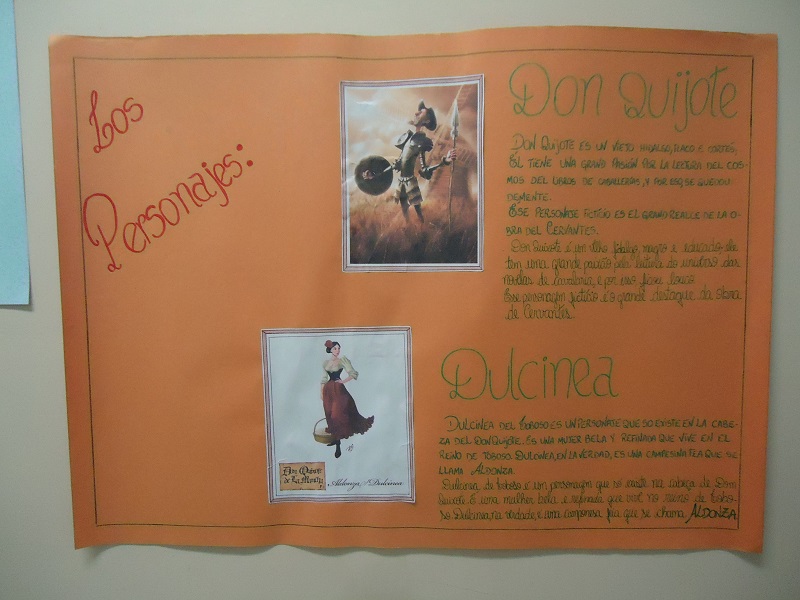 Los
Personajes:
Don Quijote
Don Quijote es un viejo hidalgo, flaco e cortés,
él tiene una grand pasión por la lectura del cos-
mos del libros de caballerías, y por eso se quedou
demente.
Ese personaje ficticio es el grand realle de la o-
bra del Cervantes.
Don Quixote é um velho fidalgo, magro e educado, ele
tem uma grande paixão pela leitura do universo das
novelas de cavalaria, e por isso ficou louco.
Esse personagem fictício é o grande destaque da obra
de Cervantes.
Dulcinea
Dulcinea del Toboso es un personaje que so existe en la cabe-
za del Don Quijote. Es una mujer bela y refinada que vive en el
reino de Toboso. Dulcinea, en la verdad, es una campesina fea que se
llama Aldonza.
Dulcinea de toboso é um personagem que só existe na cabeça de Dom
Quixote. É uma mulher bela e refinada que vive no reino de tobo-
so. Dulcinea, na verdade, é uma camponesa feia que se chama ALDONZA
Don Quixote
de La Mancha
Aldonza, Dulcinea